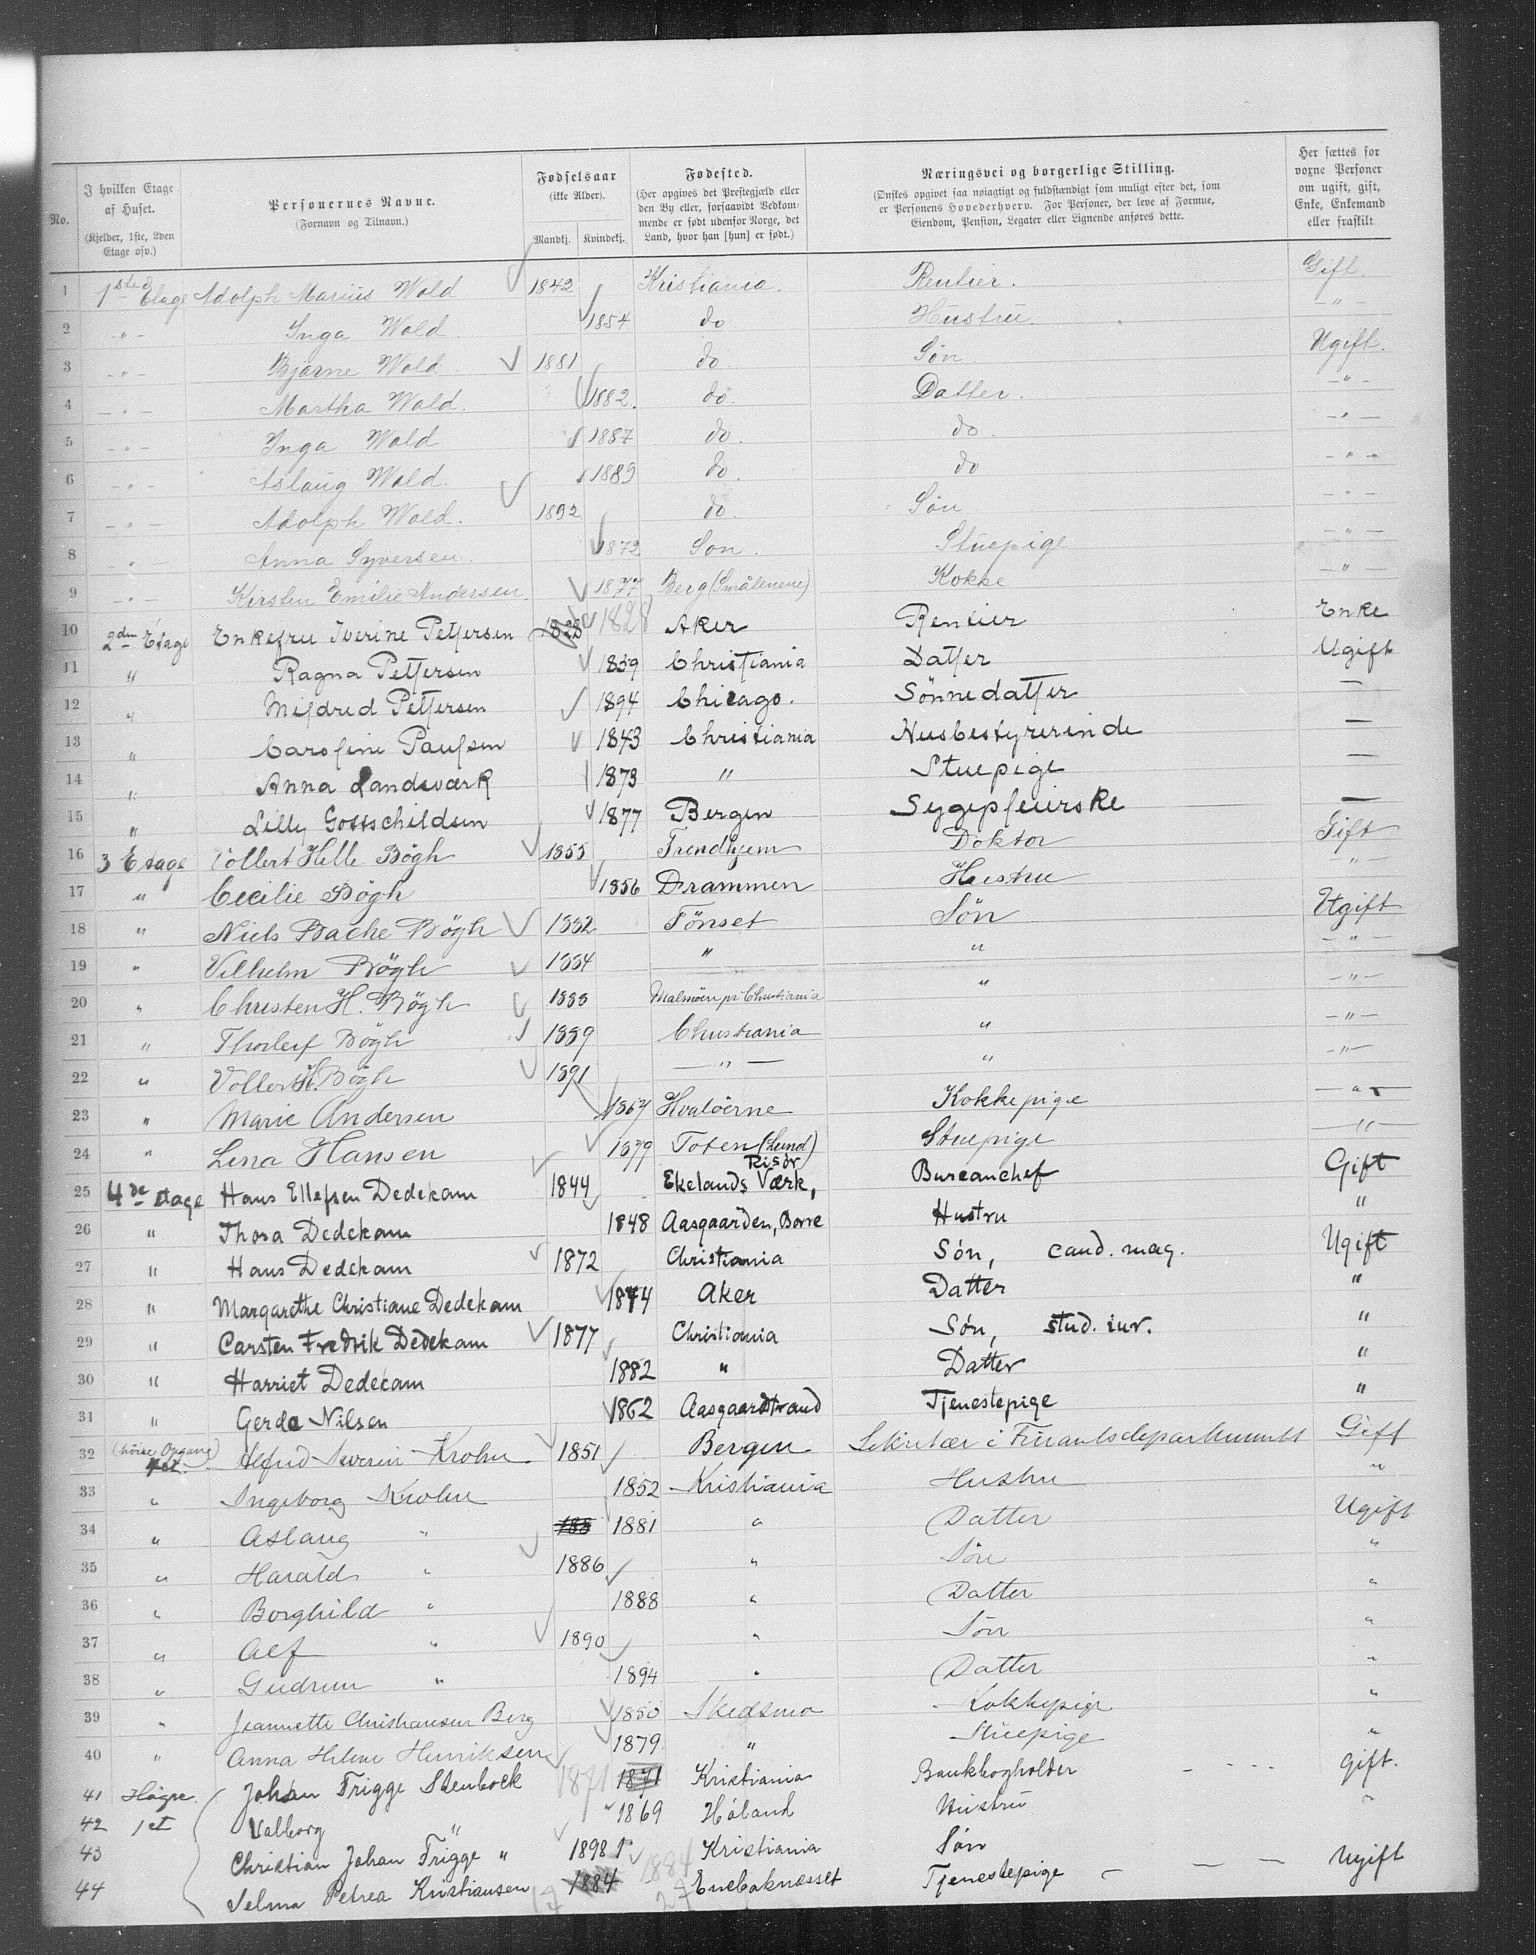 No.
I hvilken Etage af Huset. (Kjelder, 1ste, 2den Etage osv.)
Personernes Navne. (Fornavn og Tilnavn.)
Fødselsaar (ikke Alder). Mandkj. Kvindekj.
Fødested. (Her opgives det Prestegjæld eller den By eller, forsaavidt Vedkommende er født udenfor Norge, det Land, hvor han [hun] er født.)
Næringsvei og borgerlige Stilling. (Ønskes opgivet saa nøiagtigt og fuldstændigt som muligt efter det, som er Personens Hovederhverv. For Personer, der leve af Formue, Eiendom, Pension, Legater eller Lignende anføres dette.)
Her sættes for voxne Personer om ugift, gift, Enke, Enkemand eller fraskilt
1 1ste Etage Adolph Marius Wold 1842 Kristiania. Rentier. Gift
2 - " - Inga Wold 1854 do Hustru. - " -
3 - " - Bjarne Wold 1881 do. Søn Ugift.
4 - " - Martha Wold. 1882. do. Datter. - " -
5 - " - Inga Wold 1887 do. do. - " -
6 - " - Aslaug Wold. 1889 do. do - " -
7 - " - Adolph Wold. 1892 do. Søn - " -
8 - " - Anna Syversen 1872 Son. Stuepige - " -
9 - " - Kirsten Emilie Andersen. 1877 Berg (Smålenene) Kokke - " -
10 2den Etage Enkefru Iverine Pettersen 1828 1828 Aker Rentier Enke
11 " Ragna Pettersen 1859 Christiania Datter Ugift
12 " Mildred Pettersen 1894 Chicago. Sönnedatter —
13 " Caroline Paulsen 1843 Christiania Husbestyrerinde —
14 " Anna Landsværk 1873 " Stuepige —
15 " Lilly Gottschildsen 1877 Bergen Sygepleierske —
16 3 Etage Vollert Hille Bögh 1855 Trondhjem Doktor Gift
17 " Cecilie Bögh 1856 Drammen Hustru "
18 " Niels Bache Bögh 1882 Tönset Sön Ugift
19 " Vilhelm Bögh 1884 " " - " -
20 " Christen H. Bögh 1888 Malmöen pr Christiania " - " -
21 " Thorleif Bögh 1889 Christiania " - " -
22 " Vollert H. Bögh 1891 — " — " - " -
23 " Marie Andersen 1867 Hvalöerne Kokkepige - " -
24 " Lina Hansen 1879 Toten (Lund) Stuepige - " -
25 4de Etage Hans Ellefsen Dedekam 1844 Ekelands Værk, Risör Bureauchef Gift
26 " Thora Dedekam 1848 Aasgaarden, Borre Hustru "
27 " Hans Dedekam 1872 Christiania Sön, cand. mag. Ugift
28 " Margarethe Christiane Dedekam 1874 Aker Datter "
29 " Carsten Fredrik Dedekam 1877 Christiania Søn, stud. iur. "
30 " Harriet Dedecam 1882 " Datter "
31 " Gerda Nilsen 1862 Aasgaardstrand Tjenestepige "
32 (höire Opgang) 4 et. Alfred Severin Krohn 1851 Bergen Sekretær i Finantsdepartementet Gift
33 " Ingeborg Krohn 1852 Kristiania Hustru "
34 " Aslaug " 188 1881 " Datter Ugift
35 " Harald " 1886 " Sön "
36 " Borghild " 1888 " Datter "
37 " Alf " 1890 " Sön "
38 " Gudrun " 1894 " Datter "
39 " Jeannette Christiansen Berg 1850 Skedsmo Kokkepige "
40 " Anna Helene Henriksen 1879 " Stuepige "
41 Høgre. Johan Frigge Stenbock 1871 1871 Kristiania Bankbogholder - - - - Gift.
42 1 et Valborg " 1869 Höland Hustru "
43 Christian Johan Frigge " 1898 Kristiania Søn
44 Selma Petrea Kristiansen 1884 1884 Enebaknesset Tjenestepige - — — Ugift